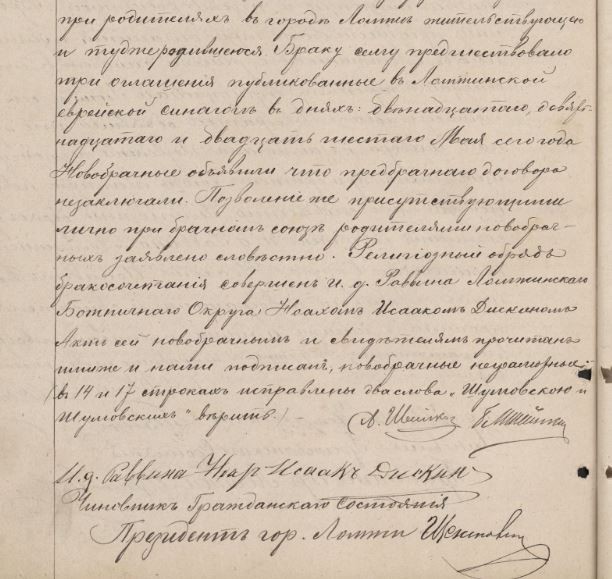 при родителяхъ въ городѣ Ломжѣ жительствующею
и тудже родившеюся. Браку сему предшествовало
три оглашенія публикованные въ Ломжинской
еврейской синагогѣ въ дняхъ: двѣнадцатаго, девят-
надцатаго и двадцать шестаго Мая сего года
Новобрачные объявили что предбрачнаго договора
незаключали. Позволеніе же присутствующими
лично при брачномъ союзѣ родителями новобрач-
ныхъ заявлено словѣстно. Религіозный обрядъ
бракосочетанія совершенъ И. д. Раввина Ломжинскаго
Божничнаго Округа Ноахомъ Исаакомъ Дискиномъ
Актъ сей новобрачнымъ и свидѣтелямъ прочитанъ
ими же и нами подписанъ, новобрачные неграмотные
(въ 14 и 17 строкахъ исправлены два слова „Шумовскою и
Шумовскихъ" вѣрить.)
И. д. Раввина Исаакъ Дискин
Чиновникъ Гражданскаго Состоянія
Президентъ гор. Ломжи